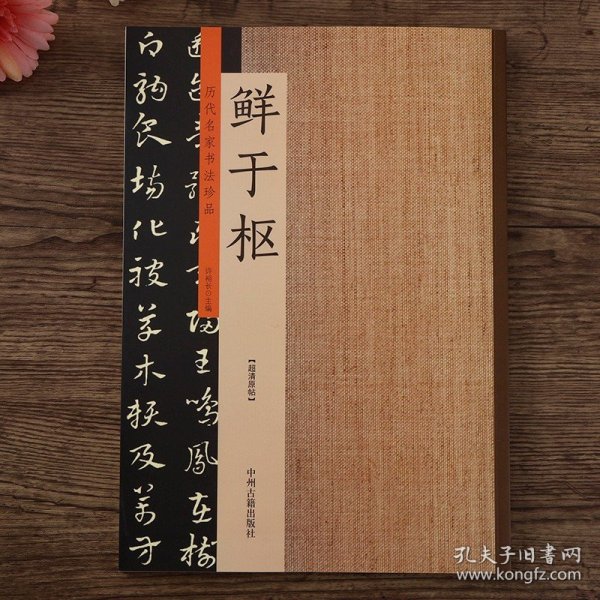 鲜于枢
历代名家书法珍品
许裕长◎主编
【超清原帖】
中州古籍出版社
归王鸣凤在树
白驹食场化被草木赖及万方
孔夫子旧书网
www.kongfz.com